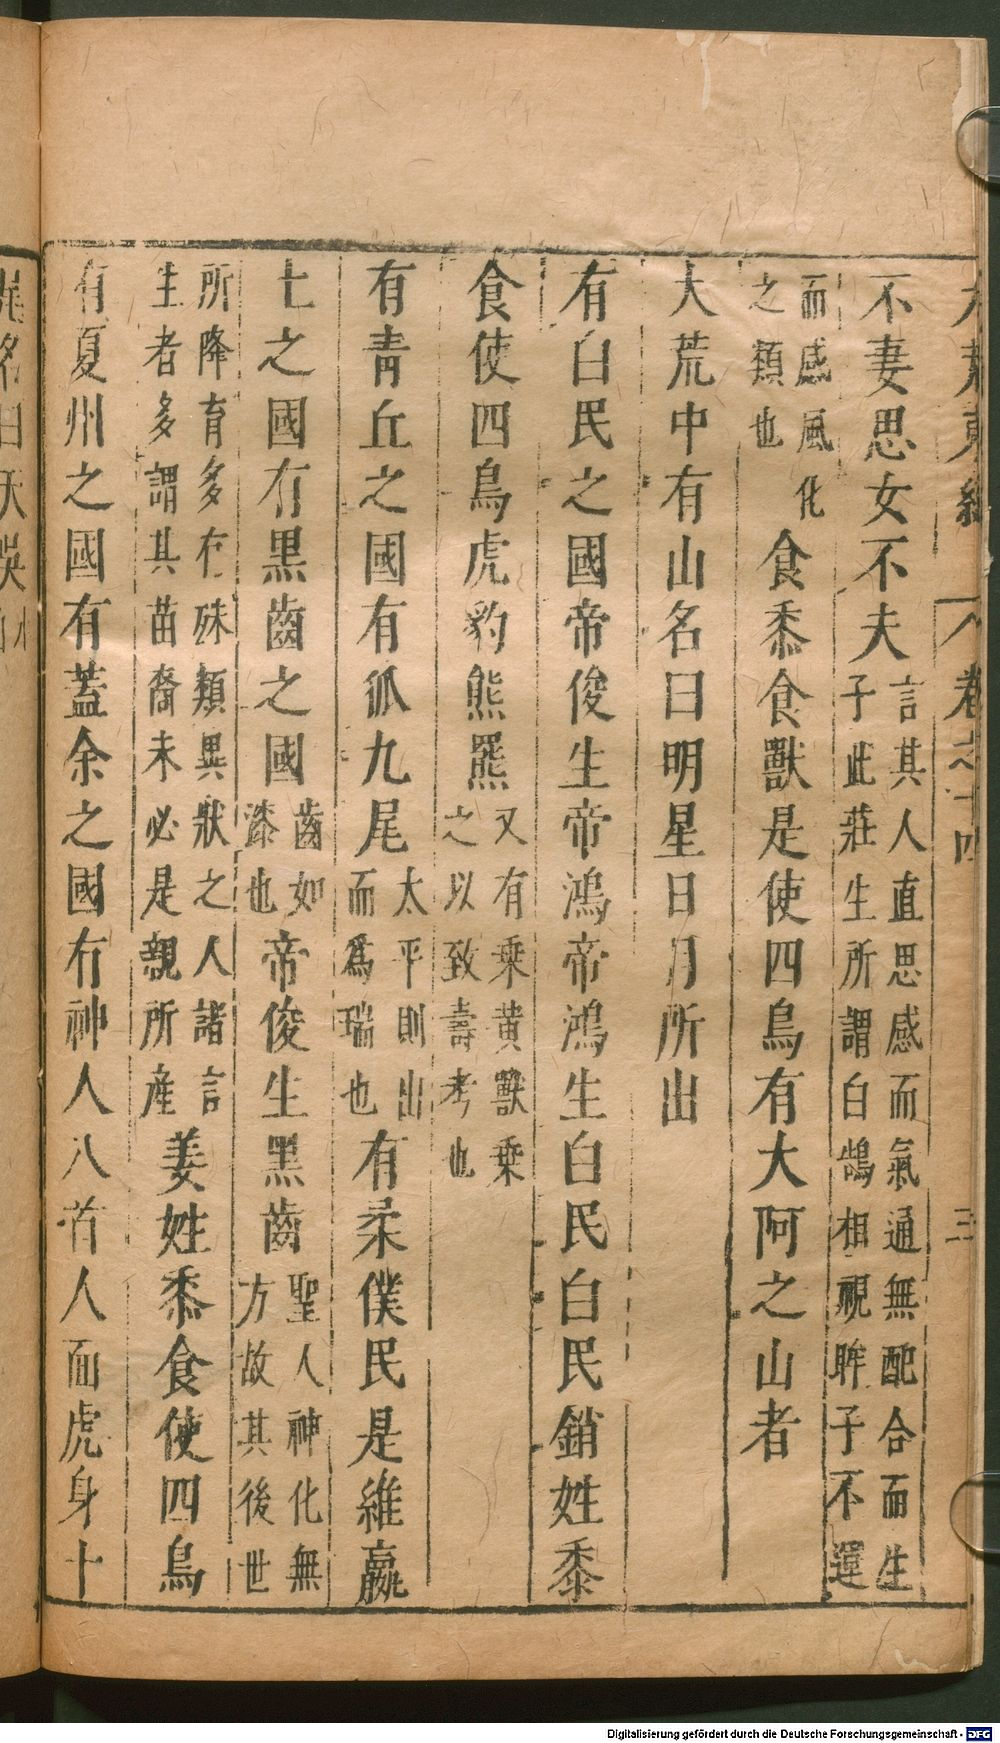 大荒東經 卷之十四 三
不妻思女不夫言其人直思感而氣通無配合而生子此莊生所謂白鵠相視眸子不運
而感風化之類也食黍食獸是使四鳥有大阿之山者
大荒中有山名曰明星日月所出
有白民之國帝俊生帝鴻帝鴻生白民白民銷姓黍
食使四鳥虎豹熊羆又有乘黃獸乘之以致壽考也
有青丘之國有狐九尾太平則出而爲瑞也有柔僕民是維嬴
土之國有黑齒之國齒如漆也帝俊生黑齒聖人神化無方故其後世
所降育多有殊類異狀之人諸言生者多謂其苗裔未必是親所産姜姓黍食使四鳥
有夏州之國有蓋余之國有神人八首人面虎身十
尾名曰天吳
Digitalisierung gefördert durch die Deutsche Forschungsgemeinschaft - DFG